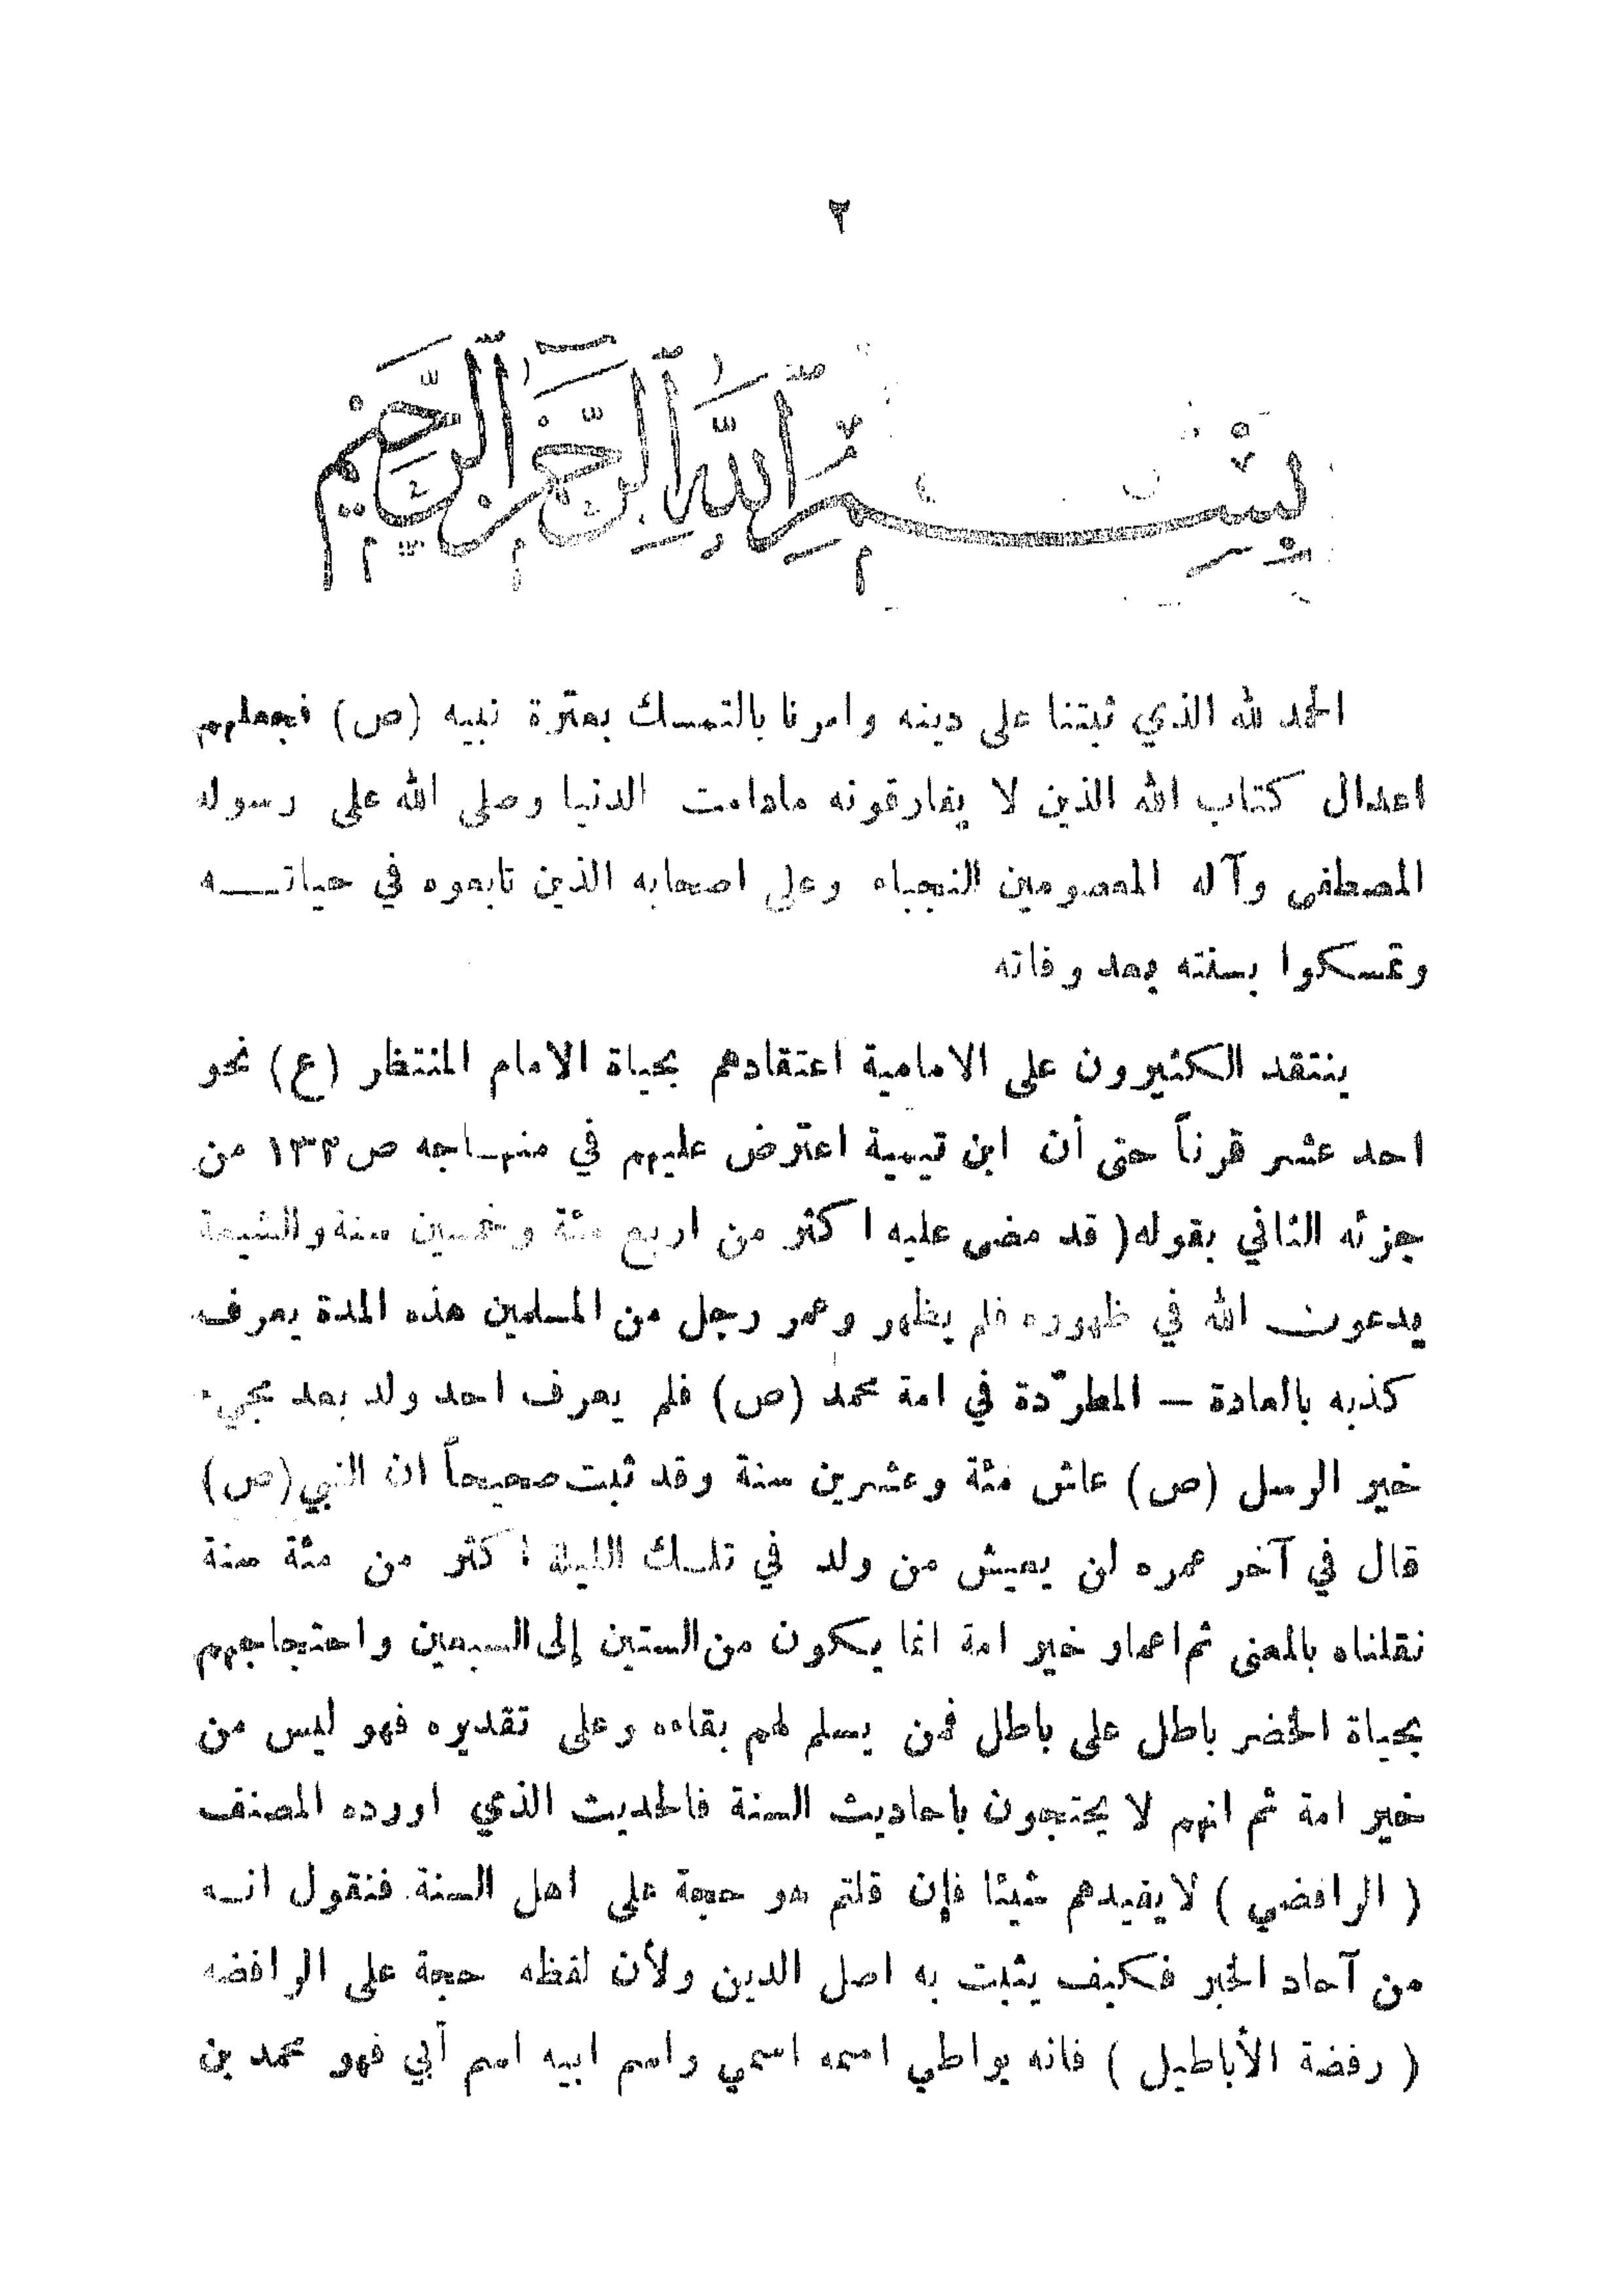 ٢
بسم الله الرحمن الرحيم
الحمد لله الذي ثبتنا على دينه وامرنا بالتمسك بعترة نبيه (ص) فجعلهم
اعدال كتاب الله الذين لا يفارقونه مادامت الدنيا وصلى الله على رسوله
المصطفى وآله المعصومين النجباء وعلى اصحابه الذين تابعوه في حياتـــه
وتمسكوا بسنته بعد وفاته
ينتقد الكثيرون على الامامية اعتقادهم بحياة الامام المنتظر (ع) نحو
احد عشر قرناً حتى أن ابن تيمية اعترض عليهم في منهـاجه ص١٣٣ من
جزئه الثاني بقوله( قد مضى عليه اكثر من اربع مئة وخمسين سنة والشيعة
يدعون الله في ظهوره فلم يظهر وعمر رجل من المسلمين هذه المدة يعرف
كذبه بالعادة — المطرّدة في امة محمد (ص) فلم يعرف احد ولد بعد مجيء
خير الرسل (ص) عاش مئة وعشرين سنة وقد ثبت صحيحاً ان النبي (ص)
قال في آخر عمره لن يعيش من ولد في تلـك الليلة اكثر من مئة سنة
نقلناه بالمعنى ثم اعمار خير امة انما يكون من الستين إلى السبعين واحتجاجهم
بحياة الخضر باطل على باطل فمن يسلم لهم بقاءه وعلى تقديره فهو ليس من
خير امة ثم انهم لا يحتجون باحاديث السنة فالحديث الذي اورده المصنف
( الرافضي ) لا يفيدهم شيئا فإن قلتم هو حجة على اهل السنة فنقول انـه
من آحاد الخبر فكيف يثبت به اصل الدين ولأن لفظه حجة على الرافضه
( رفضة الأباطيل ) فانه يواطي اسمه اسمي واسم ابيه اسم أبي فهو محمد بن